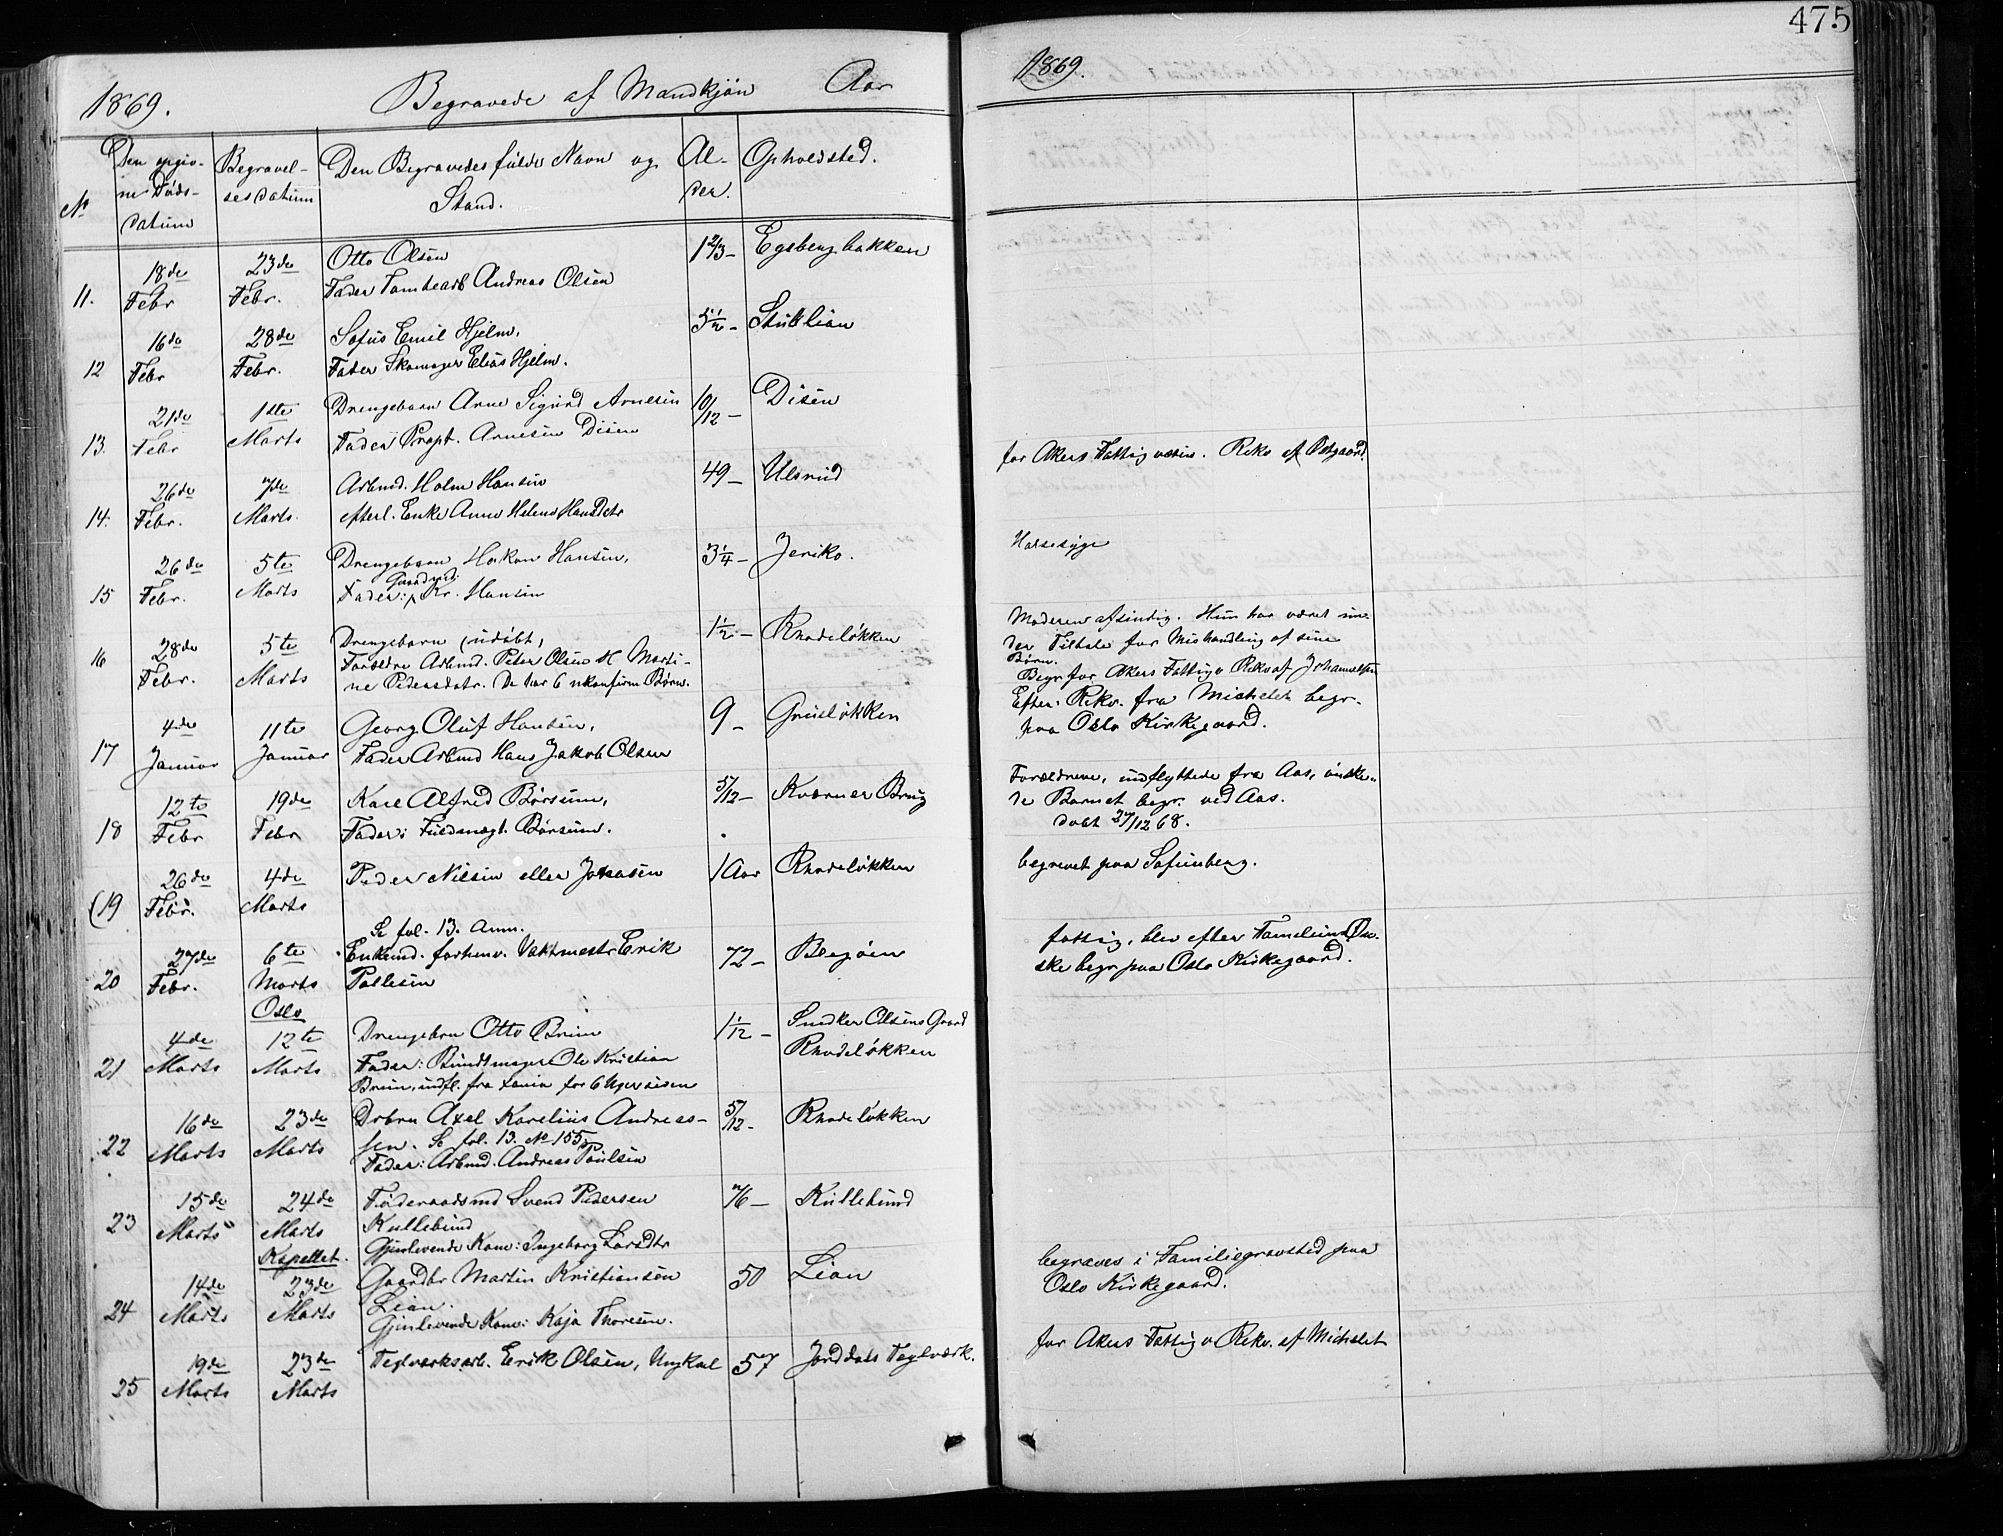 475
1869. Begravede af Mandkjön Aar
No
Den opgivne Döds-datum
Begravelsesdatum
Den Begravedes fulde Navn og Stand.
Alder.
Opholdsted.
11. 18de Febr 23de Febr. Otto Olsen 1 2/3 – Egebergbakken
Fader Tomtearb Andreas Olsen
12 16de Febr 28de Febr. Sofus Emil Hjelm. 5 1/2 – Stublian
Fader Skomager Elias Hjelm.
13. 21de Febr 1ste Marts Drengebarn Arne Sigurd Arnesen 10/12 – Disen
Fader Propt. Arnesen Disen
14. 26de Febr. 7de Marts. Arbmd. Holm Hansen 49 – Ulsrud
efterl. Enke Anne Helene Hansdtr
15 26de Febr. 5te Marts Drengebarn Hakon Hansen, 3 1/4 – Jeriko.
Fader: Gaardmd. Kr. Hansen
16 28de Febr. 5te Marts Drengebarn (udöbt) 1 1/2 – Rhodelökken
Forældre Arbmd. Peter Olsen & Marti-
ne Pedersdatr. De har 6 ukonfirm Börn.
17 4de Januar 11te Januar Georg Oluf Hansen, 9 – Grüslökken
Fader Arbmd Hans Jakob Olsen
18 12te Febr 19de Febr Karl Alfred Börsum, 5/12 – Kværner Brug
Fader: Fuldmægt. Börsum.
(19 26de Febr. 4de Marts Peder Nilsen eller Johnsen 1 Aar Rhodelökken
Se fol. 13. Anm.
20 27de Febr. 6te Marts Oslo Enkemd. forhenv. Vaktmestr Erik 72 – Blegöen
Pallesen
21 4de Marts 12te Marts Drengebrn Otto Brun 1 1/12 – Snedker Olsens Gaard
Fader: Bundtmager Ole Kristian Rhodelökken
Brun, indfl. fra Xania for 6 Uger siden
22 16de Marts 23de Marts Drbrn Axel Karelius Andreas- 5/12 – Rhodelökken
sen. Se fol. 13. No 155
Fader: Arbmd. Andreas Paulsen
23 15de Marts 24de Marts Kapellet. Föderaadsmd Svend Pedersen 76 – Kullebund
Kullebund
Gjenlevende Kone: Ingeborg Larsdtr
24 14de Marts 23de Marts Gaardbr Martin Kristiansen 50 Lian
Lian.
Gjenlevende Kone: Kaja Thoresen.
25 19de Marts 23de Marts Teglværksarb. Erik Olsen, Ungkal 57 Jorddals Teglværk.
1869.
for Akers Fattigvæsen. Rekv af Östgaard.
Halsesyge
Moderen afsindig. Hun har været un-
der Tiltale for Mishandling af sine
Börn.
Begr. for Akers Fattigv Rekv af Johannessen
Efter Rekv. fra Michelet begr.
paa Oslo Kirkegaard.
Forældrene, indflyttede fra Aas, önske-
de Barnet begr. ved Aas.
döbt 27/12 68.
begravet paa Sofienberg.
fattig, blev efter Familiens Ön-
ske begr. paa Oslo Kirkegaard.
begraves i Familiegravsted paa
Oslo Kirkegaard.
for Akers Fattigv Rekv. af Michelet